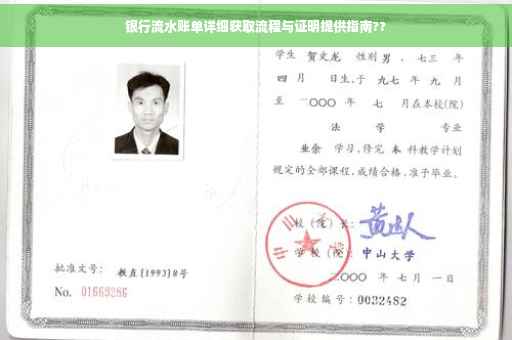 银行流水账单详细获取流程与证明提供指南??
学生 贺文龙 性别 男 、七三 年
四 月 日生,于 九七 年 九 月
至 二〇〇〇 年 七 月在本校(院)
法 学 专业
业余 学习,修完 本 科教学计划
规定的全部课程,成绩合格,准予毕业。
校(院)长:
学校(院): 中山大学
二〇〇〇 年 七 月 一 日
批准文号: 教直[1993]8号
No. 01669286
学校编号: 0032482